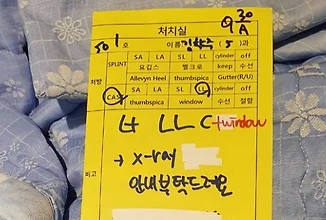 처치실 9 30 A
501 호 이름 ( 5 ) 과
처방 SPLINT SA LA SL LL cylinder off
요깁스 벨크로 keep 수선
Allevyn Heel thumbspica Gutter(R/U)
CAST SA LA SL LL cylinder off
thumbspica window 수선 절활
비고 LL C twindow
→ x-ray
안내부탁드려요